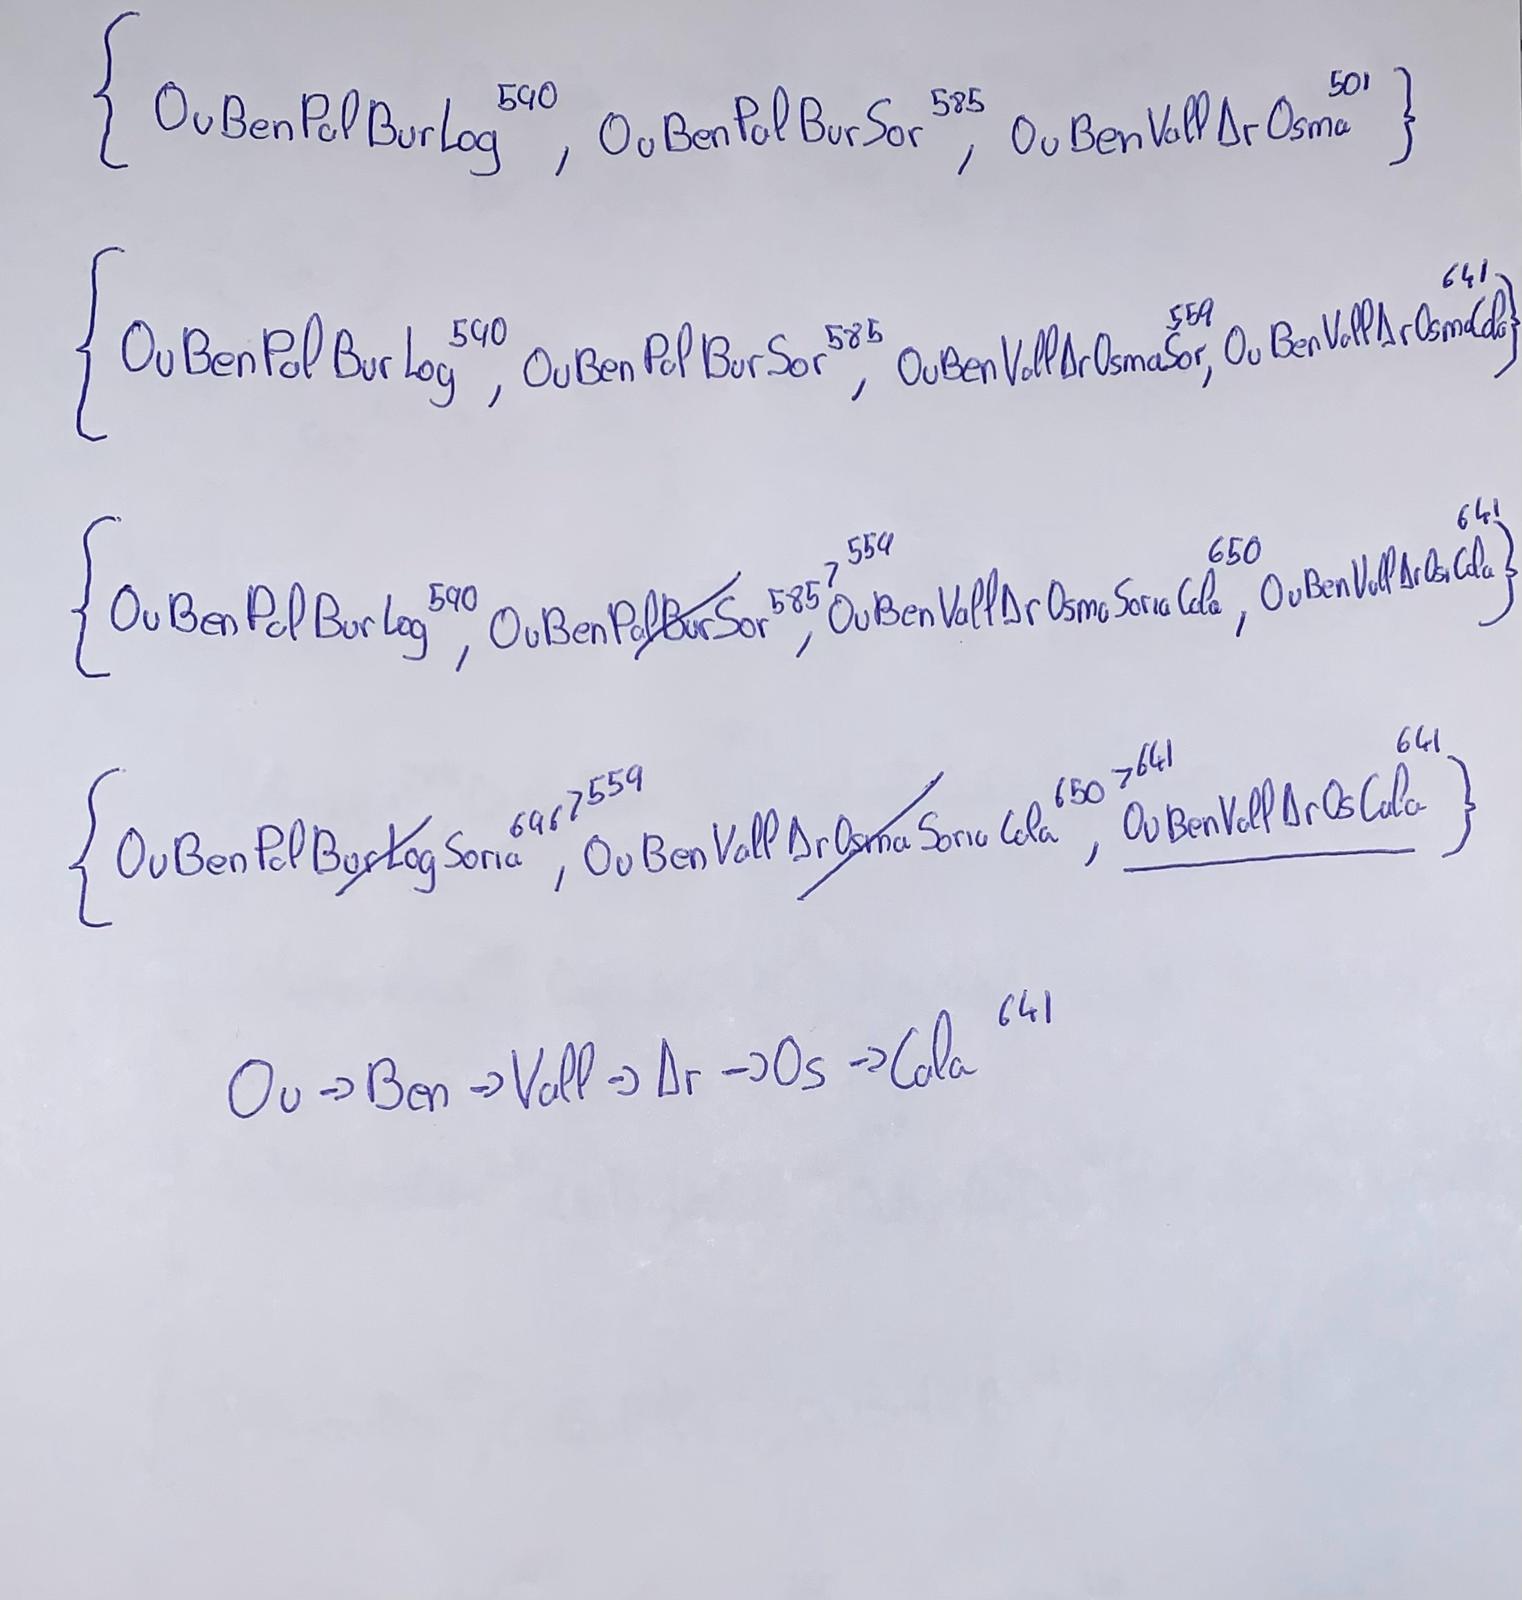 { OvBenPalBurLog 590, OvBenPalBurSor 585, OvBenVallArOsma 501 }
{ OvBenPalBurLog 590, OvBenPalBurSor 585, OvBenVallArOsmaSor 559, OvBenVallArOsmaCala 641 }
{ OvBenPalBurLog 590, OvBenPalBurSor 585 > 559, OvBenVallArOsmaSoriaCala 650, OvBenVallArOsCala 641 }
{ OvBenPalBurLogSoria 696 > 559, OvBenVallArOsmaSoriaCala 650 > 641, OvBenVallArOsCala 641 }
Ov → Ben → Vall → Ar → Os → Cala 641